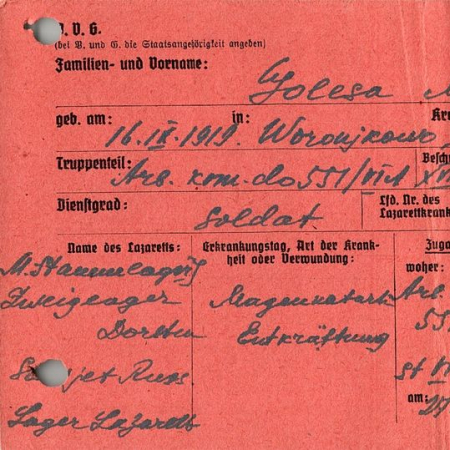 V. G.
(bei V. und G. die Staatsangehörigkeit angeben)
Familien- und Vorname:
Golesa
geb. am: in:
16. IX. 1919. Woronjkowo
Truppenteil:
Arb. kom-do 551/VI A
Dienstgrad: Lfd. Nr. des
Soldat. Lazarettkrank
Name des Lazaretts: Erkrankungstag, Art der Krank- Zuga
heit oder Verwundung: woher:
M. Stammlager VI
Zweiglager Magenkatarh Arb.
Dorsten Entkräftung 55
Sowjet Russ St VI
am:
Lager Lazarett 27